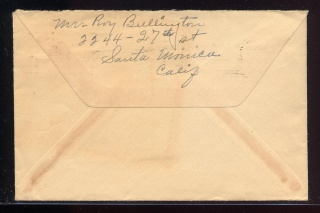 Mrs Roy Bullington
2244-27th st
Santa Monica
Calif